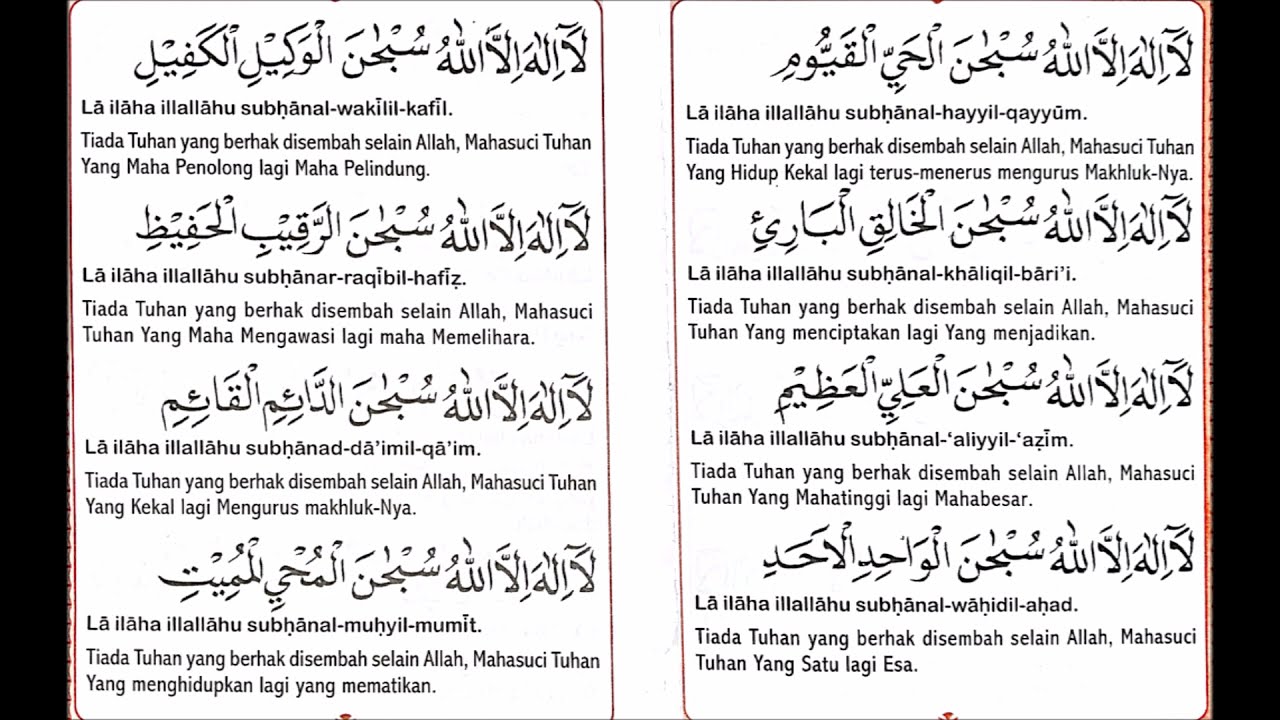 لَآ اِلٰهَ اِلَّا اللّٰهُ سُبْحٰنَ الْوَكِيْلِ الْكَفِيْلِ
Lā ilāha illallāhu subḥānal-wakīlil-kafīl.
Tiada Tuhan yang berhak disembah selain Allah, Mahasuci Tuhan
Yang Maha Penolong lagi Maha Pelindung.
لَآ اِلٰهَ اِلَّا اللّٰهُ سُبْحٰنَ الرَّقِيْبِ الْحَفِيْظِ
Lā ilāha illallāhu subḥānar-raqībil-hafīẓ.
Tiada Tuhan yang berhak disembah selain Allah, Mahasuci
Tuhan Yang Maha Mengawasi lagi maha Memelihara.
لَآ اِلٰهَ اِلَّا اللّٰهُ سُبْحٰنَ الدَّائِمِ الْقَائِمِ
Lā ilāha illallāhu subḥānad-dā’imil-qā’im.
Tiada Tuhan yang berhak disembah selain Allah, Mahasuci Tuhan
Yang Kekal lagi Mengurus makhluk-Nya.
لَآ اِلٰهَ اِلَّا اللّٰهُ سُبْحٰنَ الْمُحْيِ الْمُمِيْتِ
Lā ilāha illallāhu subḥānal-muḥyil-mumīt.
Tiada Tuhan yang berhak disembah selain Allah, Mahasuci Tuhan
Yang menghidupkan lagi yang mematikan.
لَآ اِلٰهَ اِلَّا اللّٰهُ سُبْحٰنَ الْحَيِّ الْقَيُّوْمِ
Lā ilāha illallāhu subḥānal-hayyil-qayyūm.
Tiada Tuhan yang berhak disembah selain Allah, Mahasuci Tuhan
Yang Hidup Kekal lagi terus-menerus mengurus Makhluk-Nya.
لَآ اِلٰهَ اِلَّا اللّٰهُ سُبْحٰنَ الْخَالِقِ الْبَارِئِ
Lā ilāha illallāhu subḥānal-khāliqil-bāri’i.
Tiada Tuhan yang berhak disembah selain Allah, Mahasuci
Tuhan Yang menciptakan lagi Yang menjadikan.
لَآ اِلٰهَ اِلَّا اللّٰهُ سُبْحٰنَ الْعَلِيِّ الْعَظِيْمِ
Lā ilāha illallāhu subḥānal-‘aliyyil-‘aẓīm.
Tiada Tuhan yang berhak disembah selain Allah, Mahasuci
Tuhan Yang Mahatinggi lagi Mahabesar.
لَآ اِلٰهَ اِلَّا اللّٰهُ سُبْحٰنَ الْوَاحِدِ الْاَحَدِ
Lā ilāha illallāhu subḥānal-wāḥidil-aḥad.
Tiada Tuhan yang berhak disembah selain Allah, Mahasuci
Tuhan Yang Satu lagi Esa.